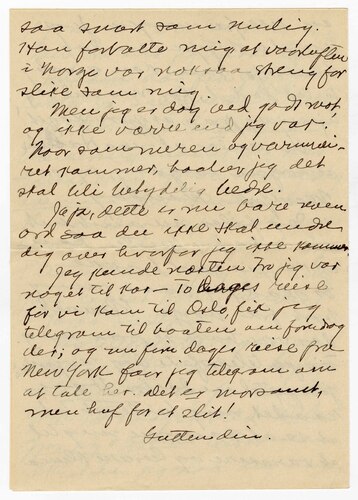 saa snart som mulig.
Han fortalte mig at vaarluften
i Norge var noksaa streng for
slike som mig.
Men jeg er dog ved godt mot,
og ikke værre end jeg var.
Naar sommeren og varmen i-
ret kommer, haaber jeg det
skal bli betydelig bedre.
Ja ja, dette er nu bare noen
ord saa du ikke skal undre
dig over hvorfor jeg ikke kommer.
Jeg kunde næsten tro jeg var
noget til kar — To dages reise
før vi kom til Oslo, fik jeg
telegram til baaten om foredrag
der; og nu fire dages reise fra
New York faar jeg telegram om
at tale her. Det er morsomt,
men huf for et slit!
Gutten din.